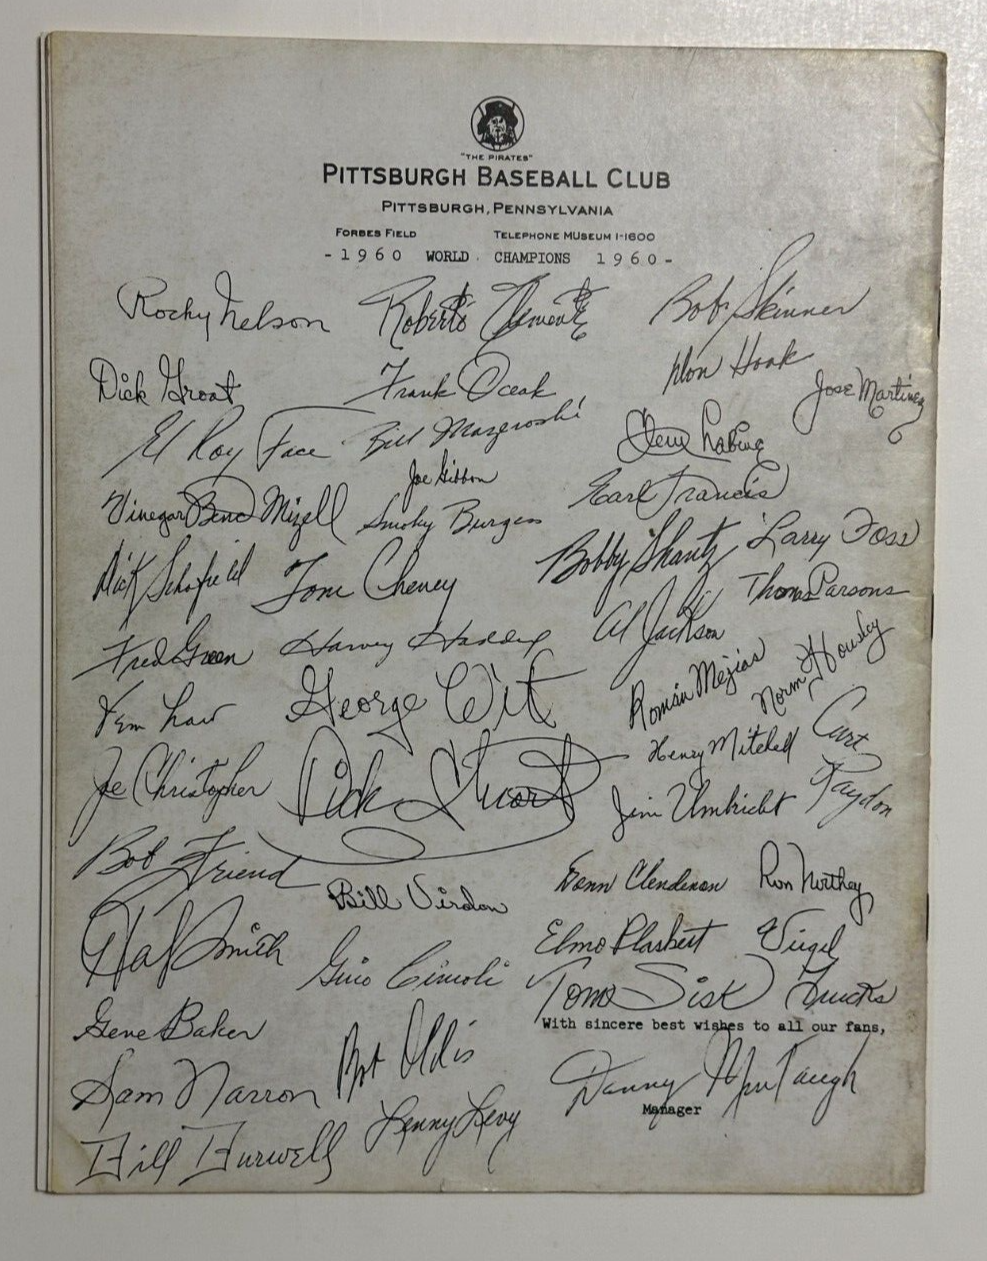 "THE PIRATES"
PITTSBURGH BASEBALL CLUB
PITTSBURGH, PENNSYLVANIA
FORBES FIELD TELEPHONE MUSEUM 1-1600
-1960 WORLD CHAMPIONS 1960-
Rocky Nelson Roberto Clemente Bob Skinner
Dick Groat Frank Oceak Don Hoak Jose Martinez
El Roy Face Bill Mazeroski Clem Labine
Joe Gibbon
Vinegar Bend Mizell Smoky Burgess Earl Francis
Dick Schofield Tom Cheney Bobby Shantz Larry Foss
Thomas Parsons
Fred Green Harvey Haddix Al Jackson
Vern Law George Witt Román Mejias Norm Housley
Joe Christopher Dick Stuart Henry Mitchell Curt Raydon
Jim Umbricht
Bob Friend Bill Virdon Donn Clendenon Ron Northey
Hal Smith Gino Cimoli Elmo Plaskett Virgil Trucks
Tom Sisk
With sincere best wishes to all our fans,
Gene Baker Bob Oldis
Sam Narron Danny Murtaugh
Manager
Bill Burwell Lenny Levy